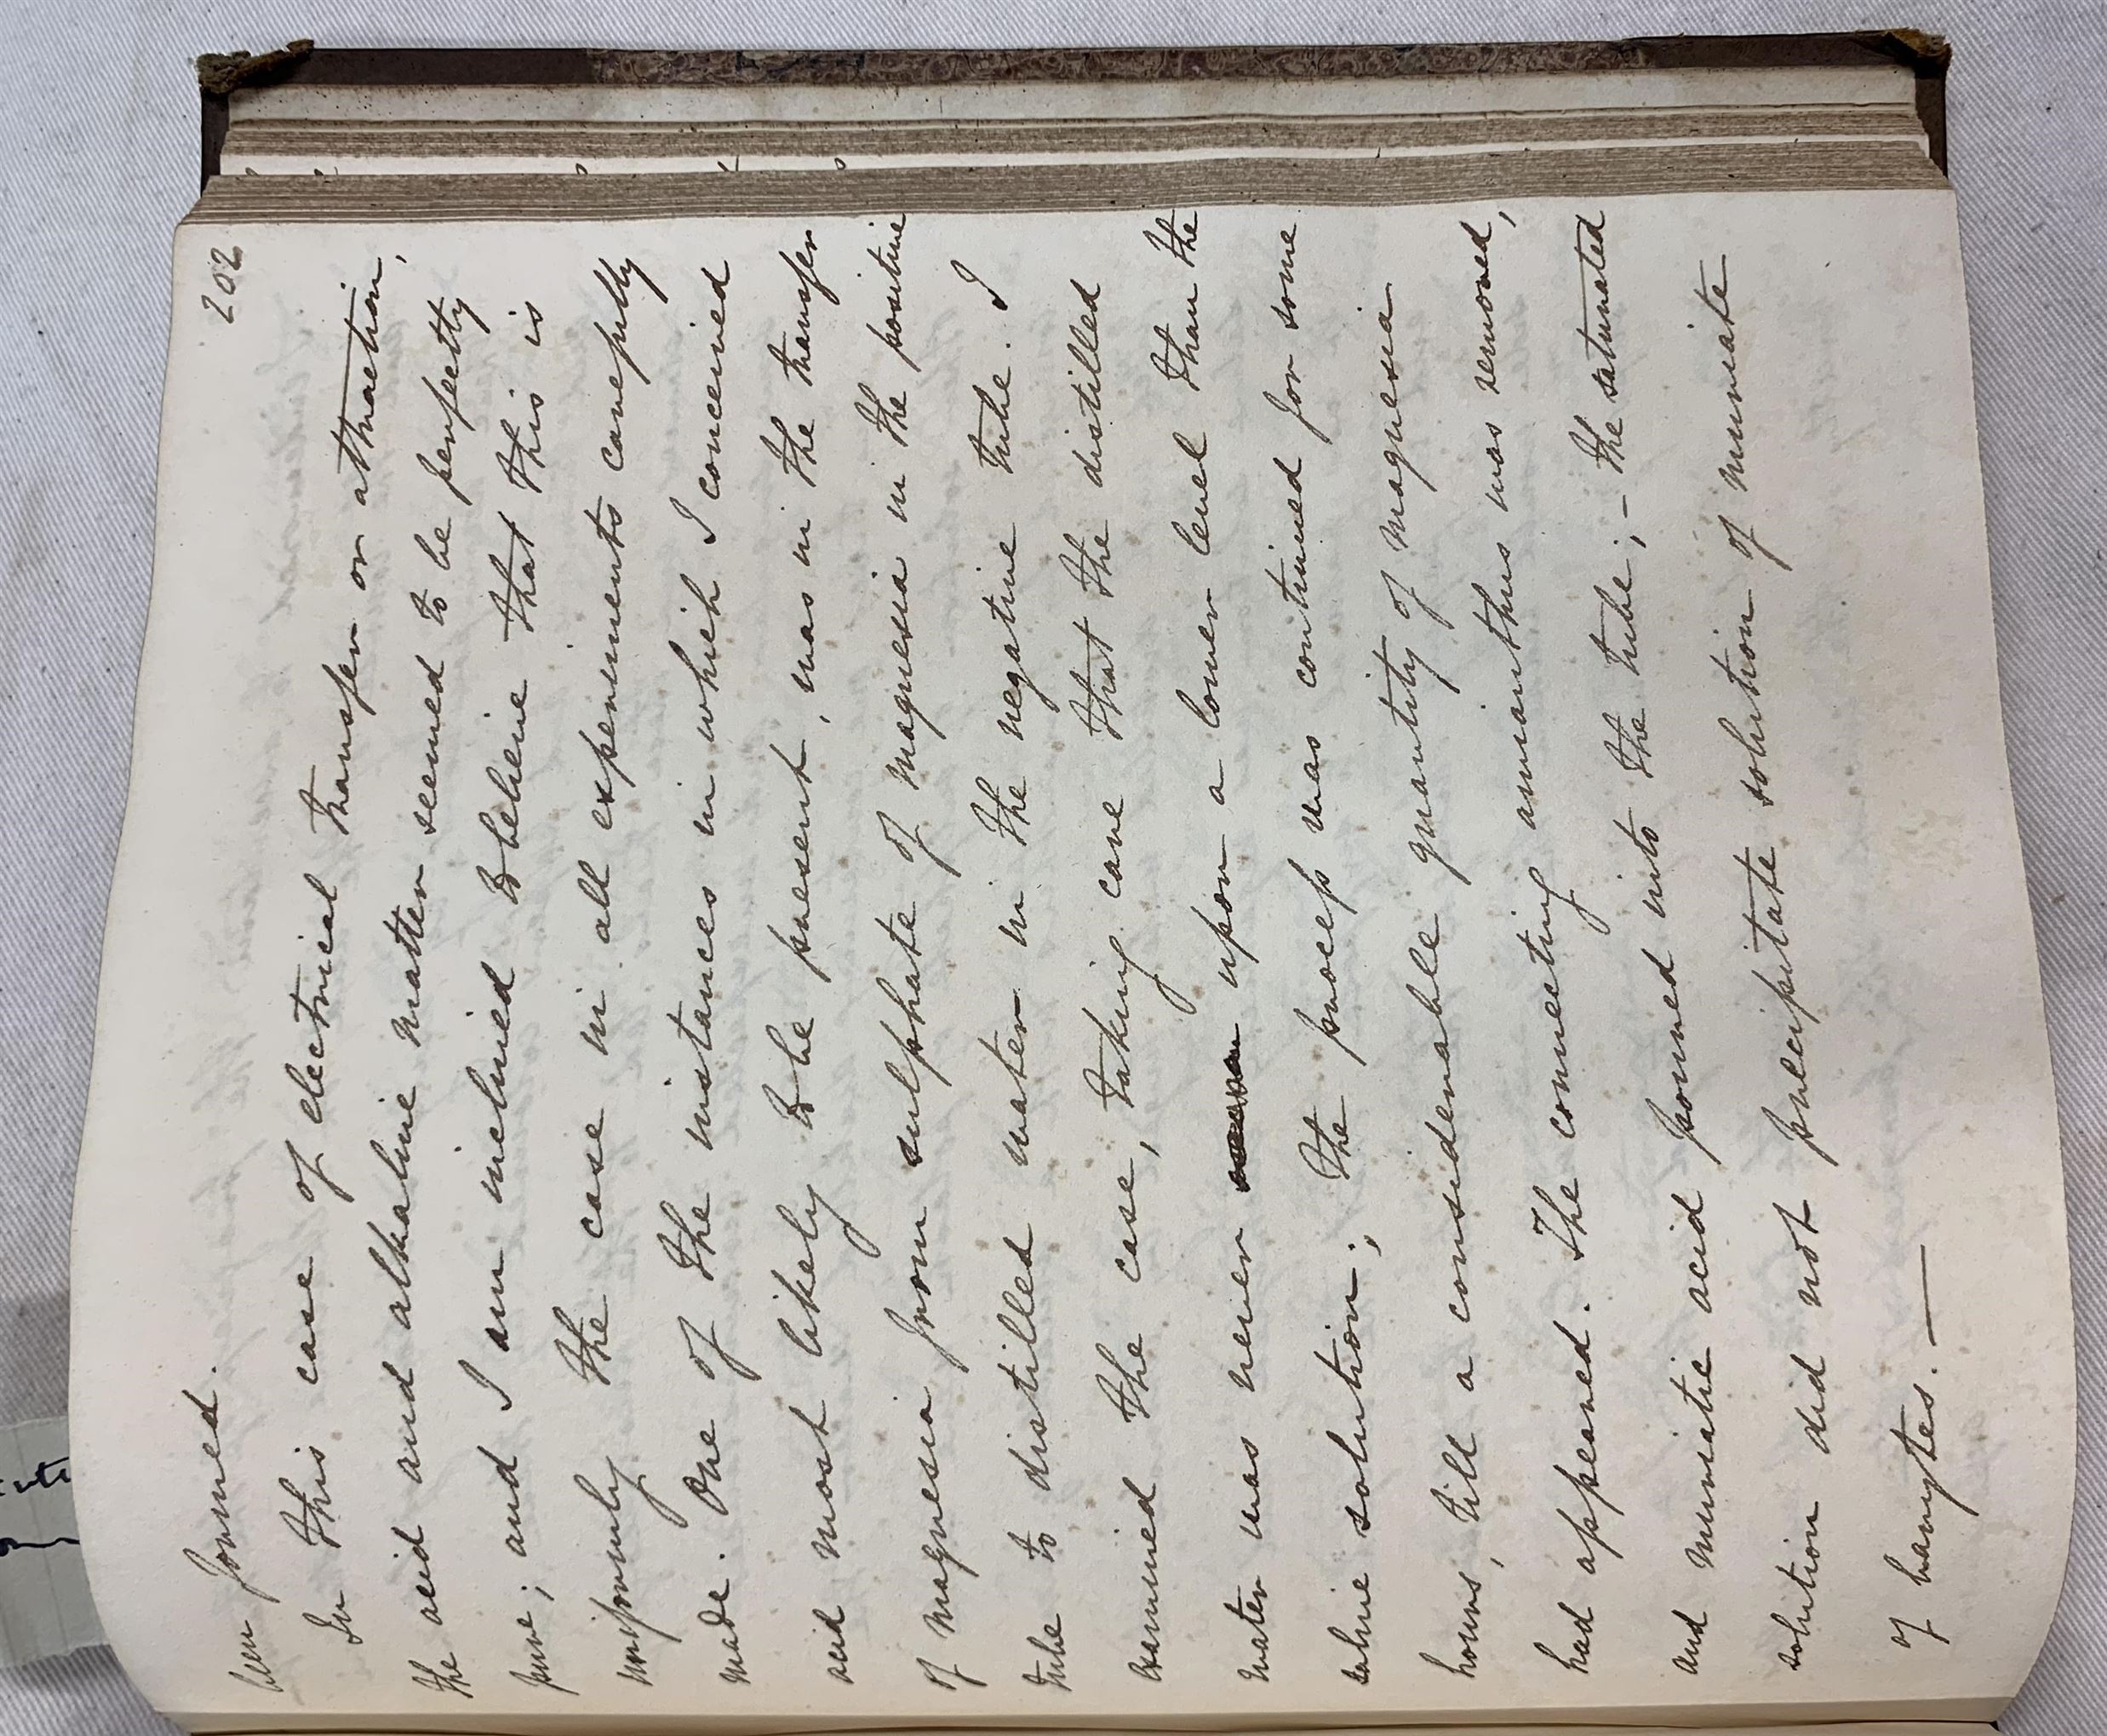 202
been formed.
In this case of electrical transfer or attraction,
the acid and alkaline matter seemed to be perfectly
pure; and I am inclined to believe that this is
uniformly the case in all experiments carefully
made. One of the instances in which I conceived
acid most likely to be present, was in the transfer
of magnesia from sulphate of magnesia in the positive
tube to distilled water in the negative tube. I
examined the case, taking care that the distilled
water was never upon a lower level than the
saline solution; the process was continued for some
hours, till a considerable quantity of magnesia
had appeared. The connecting amianthus was removed,
and muriatic acid poured into the tube; - the saturated
solution did not precipitate solution of muriate
of barytes. —